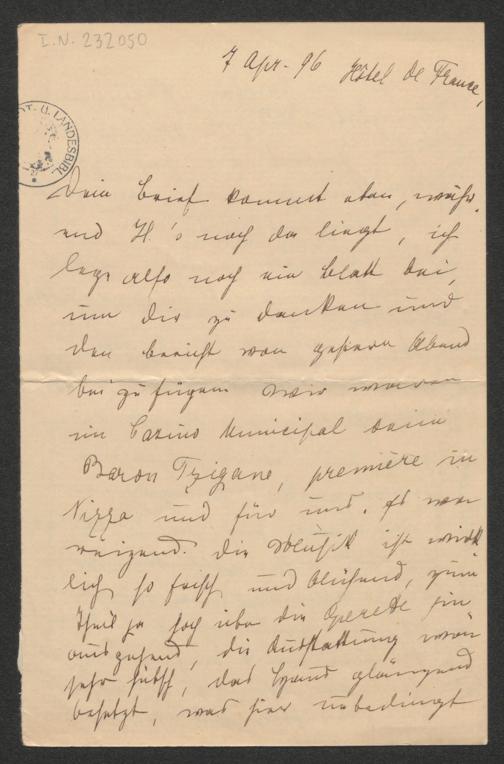 I.N. 232050
7 Apr. 96 Hôtel de France,
U. LANDESBIBL
Dein Brief kommt eben, währ
end H.'s noch da liegt, ich
lege also noch ein Blatt bei,
um dir zu danken und
den Bericht von gestern Abend
beizufügen. Wir waren
im Casino Municipal beim
Baron Tzigane, première in
Nizza und für uns. Es war
reizend. Die Musik ist wirk
lich so frisch und blühend, zum
Theil ja hoch über die Operette hin
ausgehend, die Ausstattung war
sehr hübsch, das Haus glänzend
besetzt, was hier unbedingt